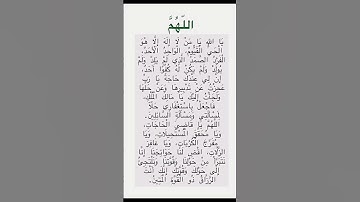 اللَّهُمَّ
يَا اللَّهُ يَا مَنْ لَا إِلَهَ إِلَّا هُوَ
الْحَيُّ الْقَيُّومُ، الْوَاحِدُ الْأَحَدُ،
الْفَرْدُ الصَّمَدُ الَّذِي لَمْ يَلِدْ وَلَمْ
يُولَدْ وَلَمْ يَكُنْ لَهُ كُفُوًا أَحَدٌ،
إِنَّ لِي عِنْدَكَ حَاجَةً يَا رَبِّ
عَجَزْتُ عَنْ تَدْبِيرِهَا وَعَنْ حَلِّهَا
وَلَجَأْتُ إِلَيْكَ يَا مَالِكَ الْمُلْكِ،
فَاجْعَلْ بِاسْتِغْفَارِي حَلًّا
لِمَسْأَلَتِي وَمَسْأَلَةِ السَّائِلِينَ.
اللَّهُمَّ يَا قَاضِيَ الْحَاجَاتِ،
وَيَا مُحَقِّقَ الْمُسْتَحِيلَاتِ وَيَا
مُفَرِّجَ الْكُرُبَاتِ، وَيَا غَافِرَ
الزَّلَّاتِ، اقْضِ لَنَا حَوَائِجَنَا إِنَّا
نَتَبَرَّأُ مِنْ حَوْلِنَا وَقُوَّتِنَا وَنَلْتَجِئُ
إِلَى حَوْلِكَ وَقُوَّتِكَ إِنَّكَ أَنْتَ
الرَّزَّاقُ ذُو الْقُوَّةِ الْمَتِينُ.